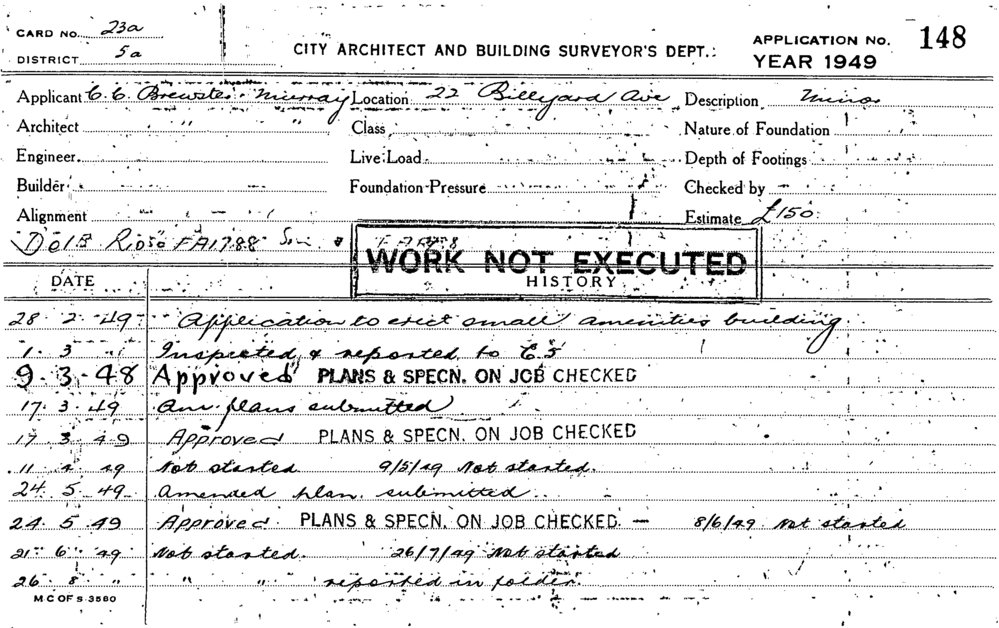 CARD No. 23a
DISTRICT 5a
CITY ARCHITECT AND BUILDING SURVEYOR'S DEPT.:
APPLICATION No. 148
YEAR 1949
Applicant C. C. Brewster Murray Location 22 Billyard Ave Description Minor
Architect " " Class Nature of Foundation
Engineer Live Load Depth of Footings
Builder Foundation Pressure Checked by
Alignment Estimate £150
Del Rio FA1788
WORK NOT EXECUTED
DATE HISTORY
28 2 49 Application to erect small amenities building
1. 3 " Inspected & reported to C.S
9. 3. 48 Approved PLANS & SPECN. ON JOB CHECKED
17. 3. 49 Am. plans submitted
17 3 49 Approved PLANS & SPECN. ON JOB CHECKED
11 4 49 Not started 9/5/49 Not started.
24. 5. 49 Amended plan submitted
24. 5. 49 Approved PLANS & SPECN. ON JOB CHECKED. — 8/6/49 Not started
21 6 49 Not started. 26/7/49 Not started
26. 8 " " " reported in folder.
M C OF S 3580